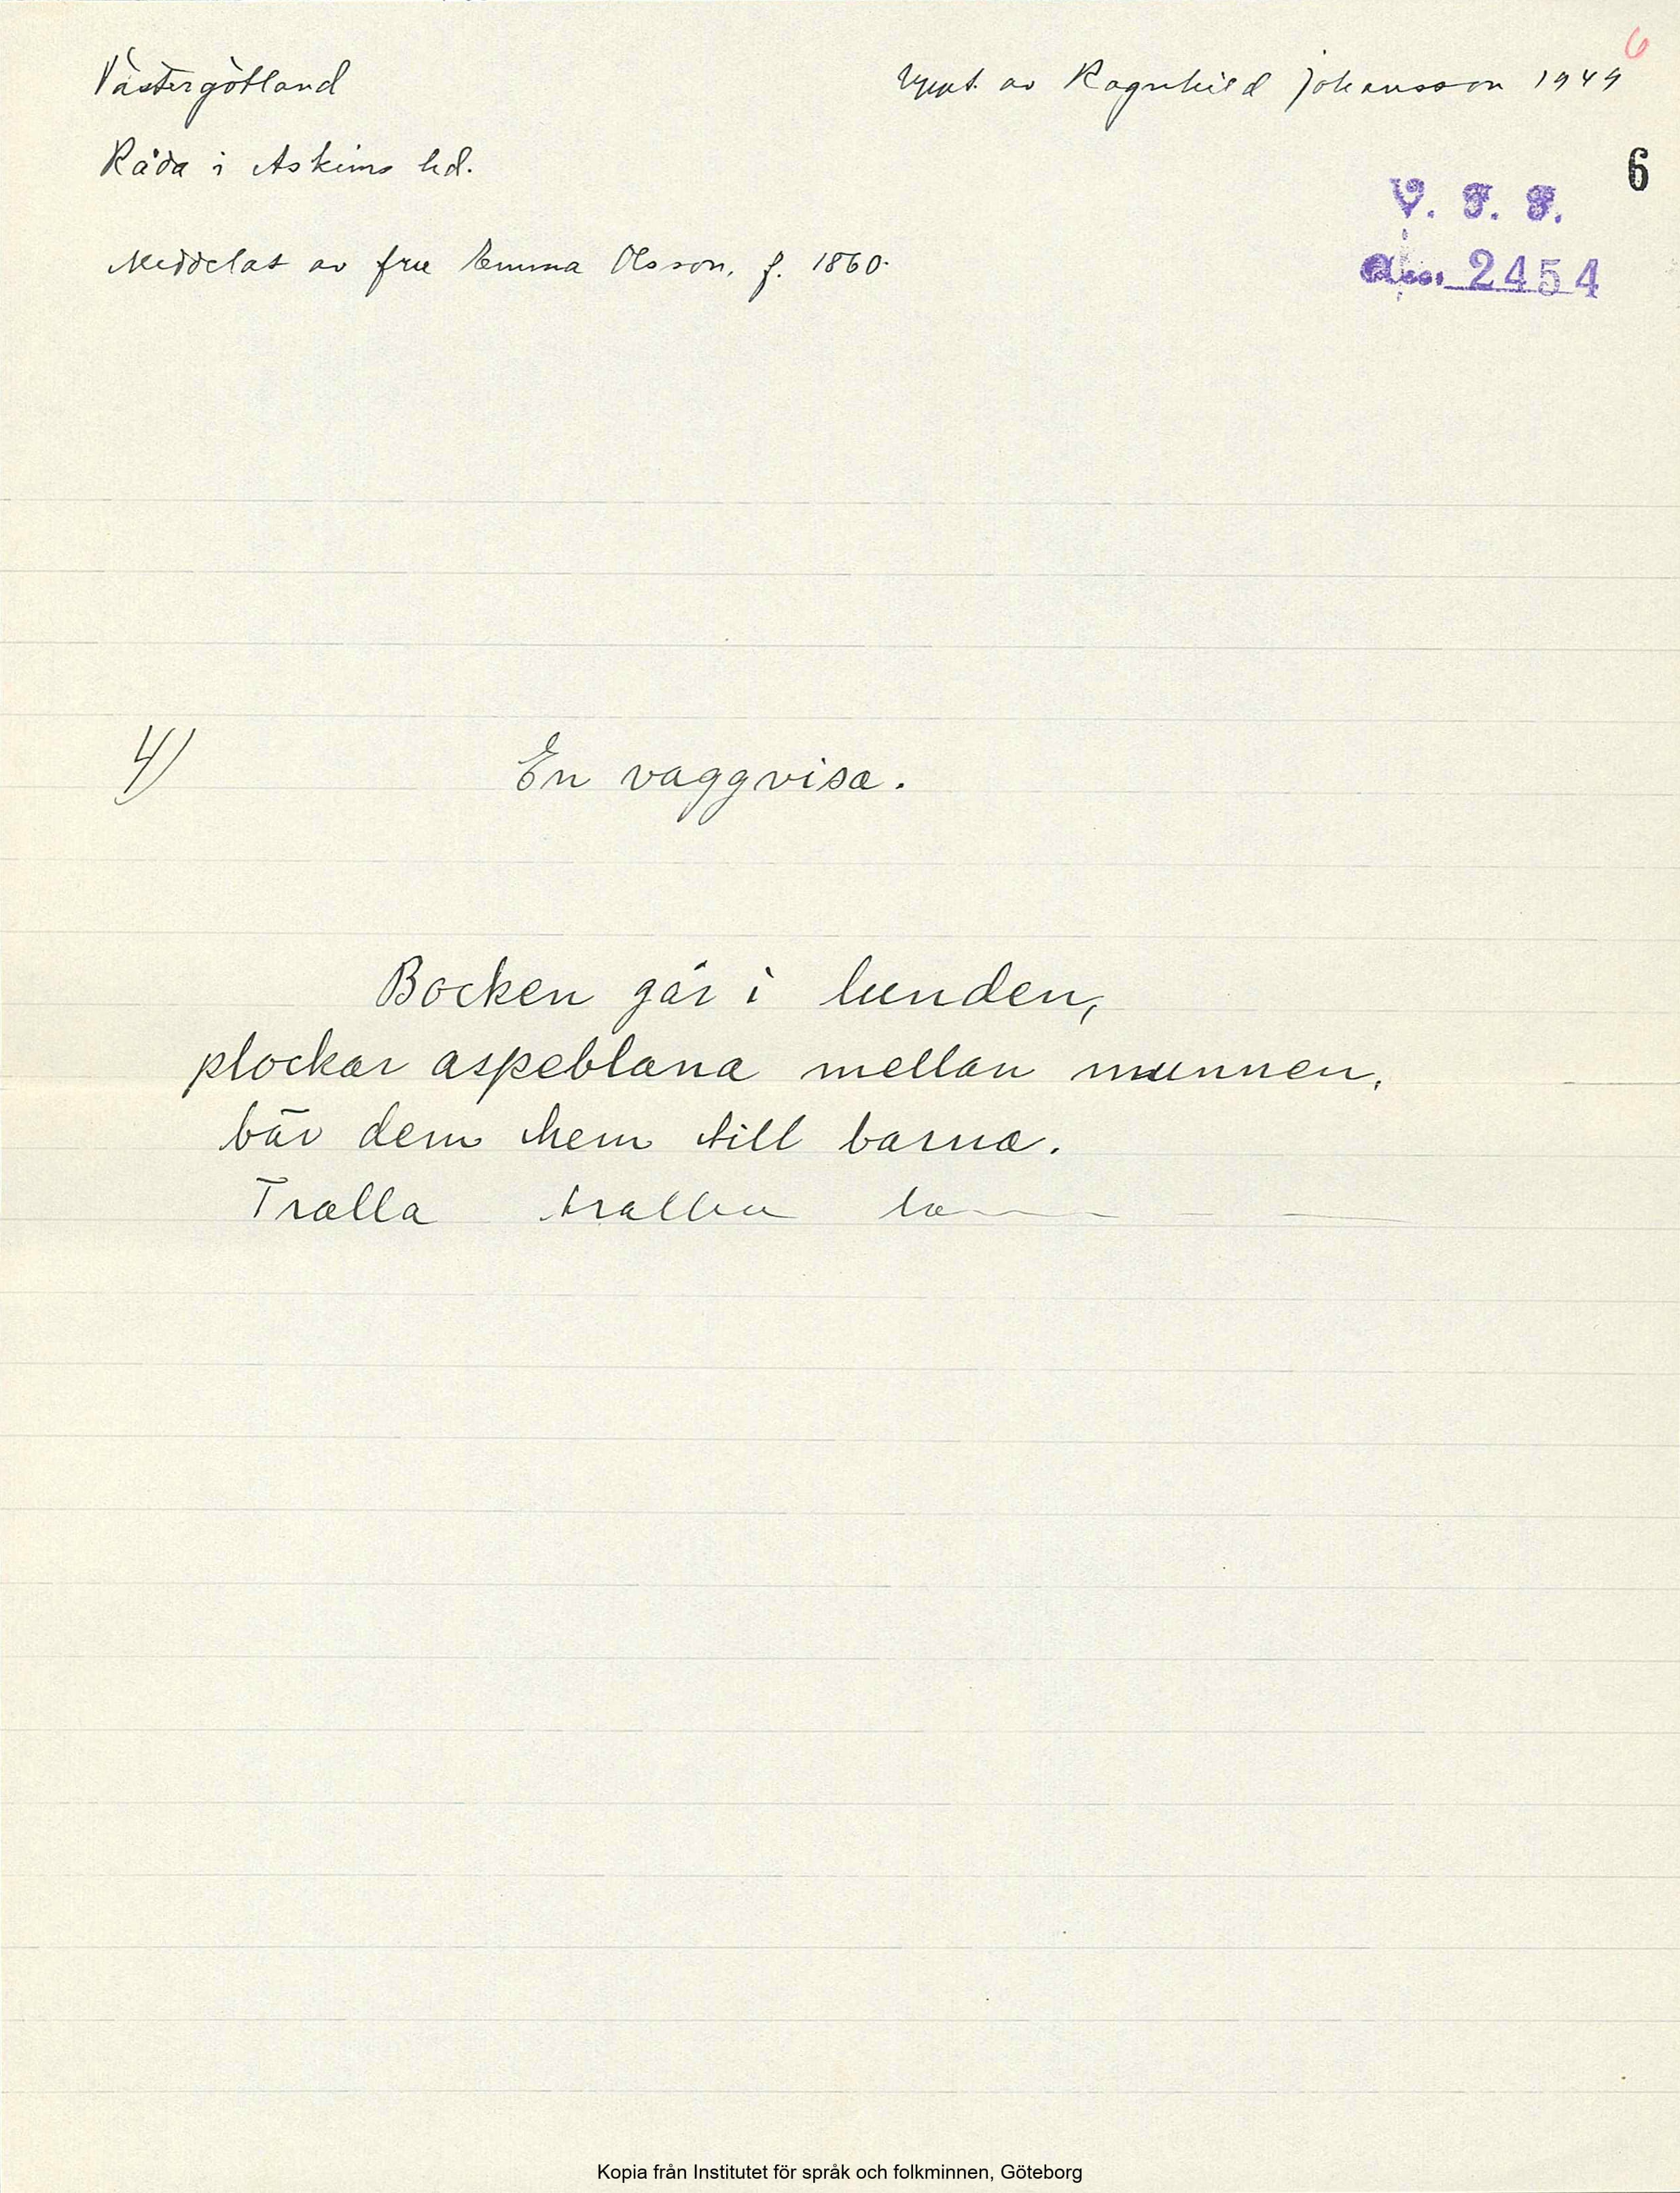 6
Västergötland
Uppt. av Ragnhild Johansson 1949
Råda i Askims hd.
6
V. F. F.
Meddelat av fru Emma Olsson, f. 1860.
Acc. 2454
4)
En vaggvisa.
Bocken går i lunden,
plockar aspeblana mellan munnen,
bär dem hem till barna.
Tralla tralla la
Kopia från Institutet för språk och folkminnen, Göteborg